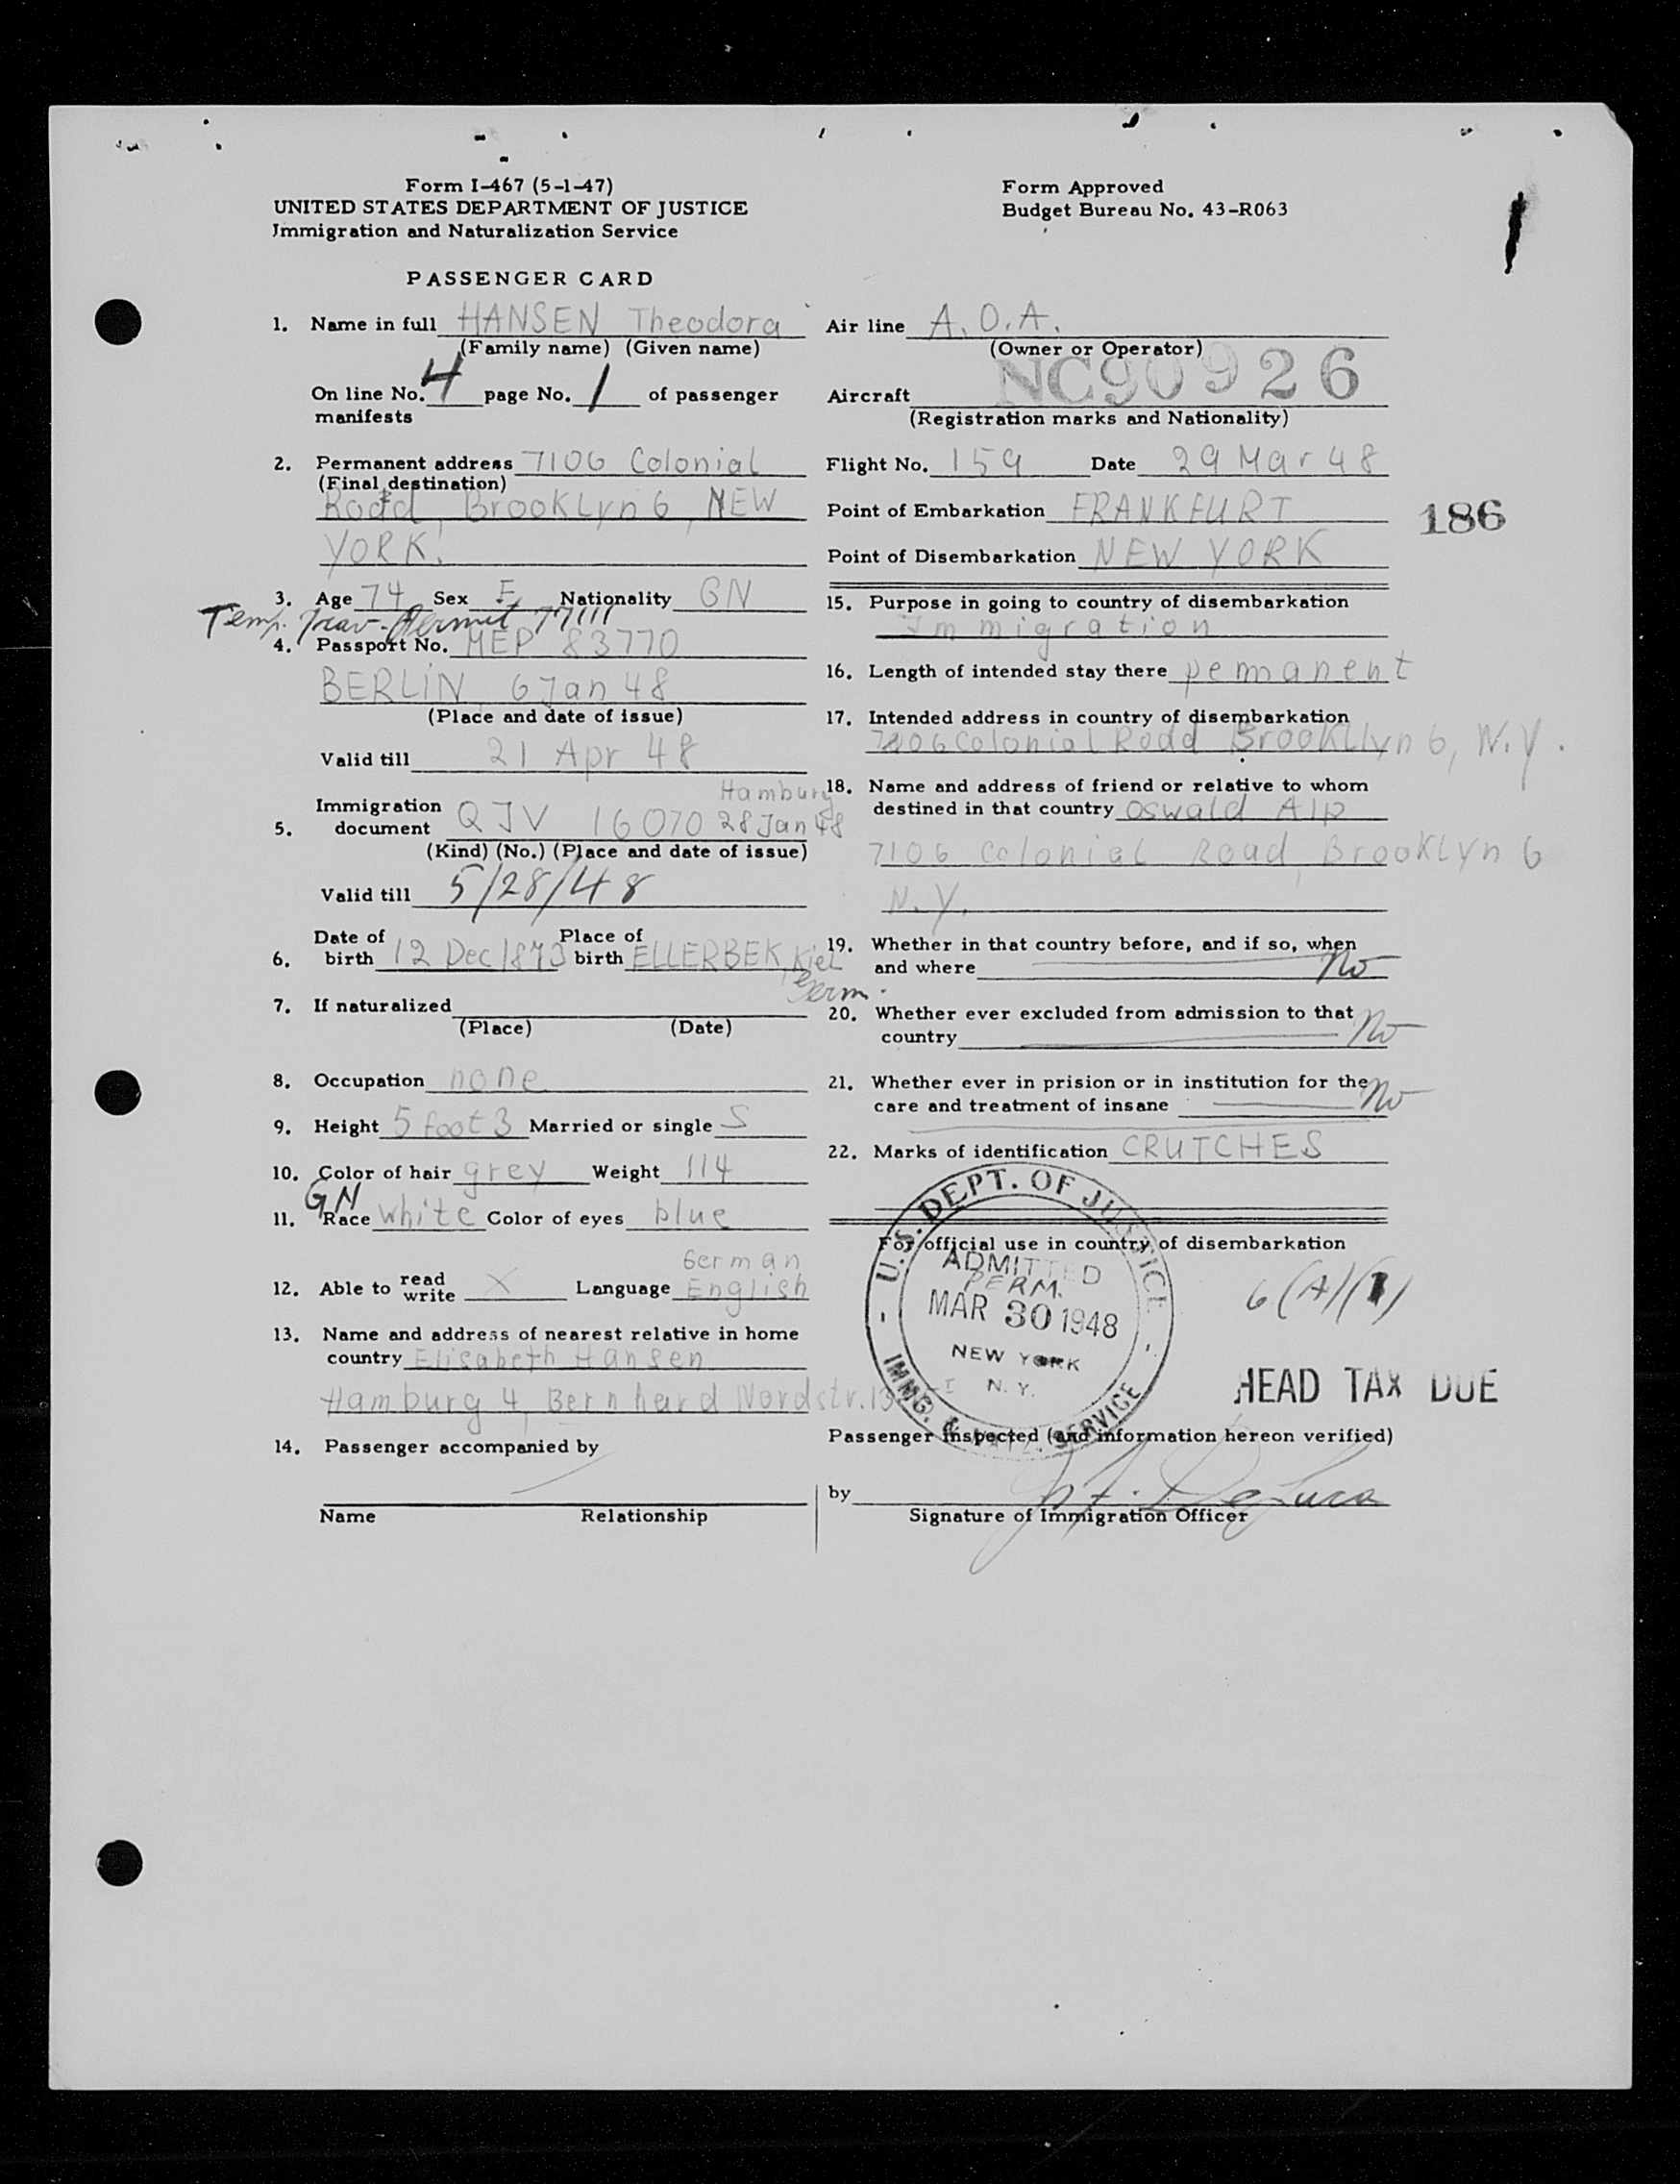 Form I-467 (5-1-47)
UNITED STATES DEPARTMENT OF JUSTICE
Immigration and Naturalization Service
Form Approved
Budget Bureau No. 43-R063
PASSENGER CARD
1. Name in full HANSEN Theodora
(Family name) (Given name)
On line No. 4 page No. 1 of passenger
manifests
2. Permanent address 7106 Colonial
(Final destination)
Road, Brooklyn 6, NEW
YORK.
3. Age 74 Sex F Nationality GN
Temp. Trav. Permit 77111
4. Passport No. MEP 83770
BERLIN 6 Jan 48
(Place and date of issue)
Valid till 21 Apr 48
Hamburg
5. Immigration document QIV 16070 28 Jan 48
(Kind) (No.) (Place and date of issue)
Valid till 5/28/48
6. Date of birth 12 Dec 1873 Place of birth ELLERBEK, Kiel
Germ.
7. If naturalized
(Place) (Date)
8. Occupation none
9. Height 5 foot 3 Married or single S
10. Color of hair grey Weight 114
GN
11. Race white Color of eyes blue
German
12. Able to read write X Language English
13. Name and address of nearest relative in home
country Elisabeth Hansen
Hamburg 4, Bernhard Nordstr.
14. Passenger accompanied by
Name Relationship
Air line A.O.A.
(Owner or Operator)
Aircraft NC90926
(Registration marks and Nationality)
Flight No. 159 Date 29 Mar 48
Point of Embarkation FRANKFURT
186
Point of Disembarkation NEW YORK
15. Purpose in going to country of disembarkation
Immigration
16. Length of intended stay there pemanent
17. Intended address in country of disembarkation
7106 Colonial Road Brookllyn 6, N.Y.
18. Name and address of friend or relative to whom
destined in that country Oswald Alp
7106 Colonial Road, Brooklyn 6
N.Y.
19. Whether in that country before, and if so, when
and where No
20. Whether ever excluded from admission to that
country No
21. Whether ever in prision or in institution for the
care and treatment of insane No
22. Marks of identification CRUTCHES
For official use in country of disembarkation
U.S. DEPT. OF JUSTICE
ADMITTED
PERM.
MAR 30 1948
NEW YORK
N.Y.
IMMG. & NATZ. SERVICE
6(A)(1)
HEAD TAX DUE
Passenger inspected (and information hereon verified)
by DeLuca
Signature of Immigration Officer